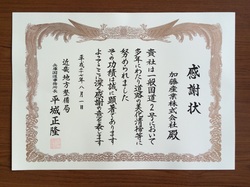 感謝状
加藤産業株式会社 殿
貴社は一般国道2号において
多年にわたり道路の美化清掃等に
努められました
その功績は誠に顕著であります
よってここに深く感謝の意を表します
平成二十一年八月一日
近畿地方整備局
兵庫国道事務所長 平城正隆